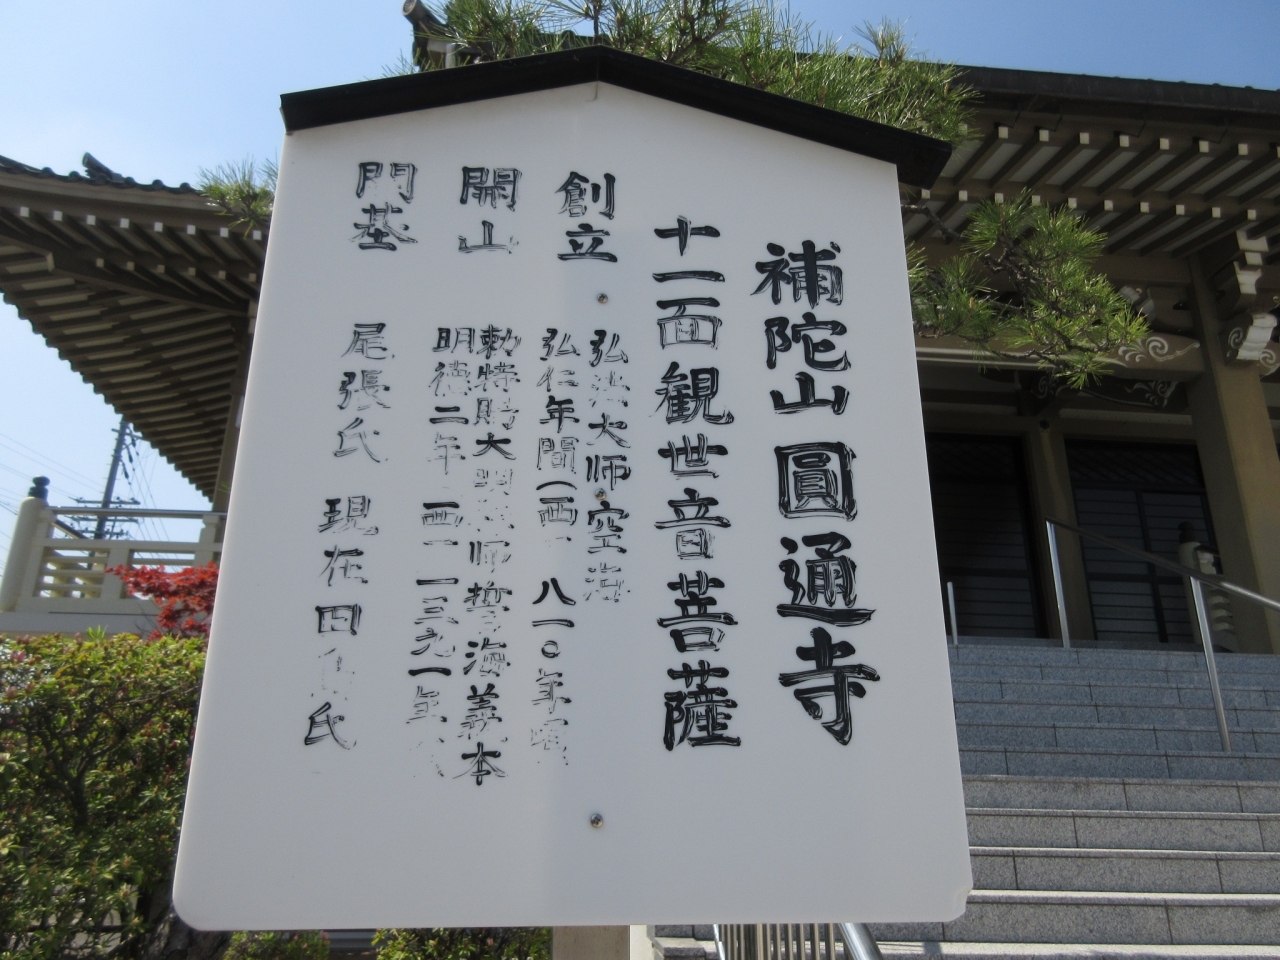 補陀山 圓通寺
十一面観世音菩薩
創立 弘法大师 空海
弘仁年間(西 八一〇年
開山 勅特賜大明 师誓海義本
明徳二年 西 一三九一年
開基 尾張氏 現在田 氏